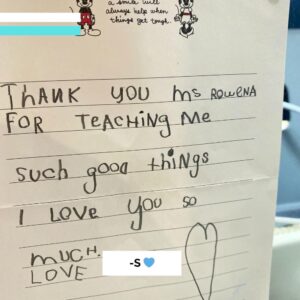 a smile will
always help when
things get tough.
THANK YOU Ms ROWENA
FOR TEACHING ME
such good things
I LOVE YOU SO
MUCH.
LOVE -S